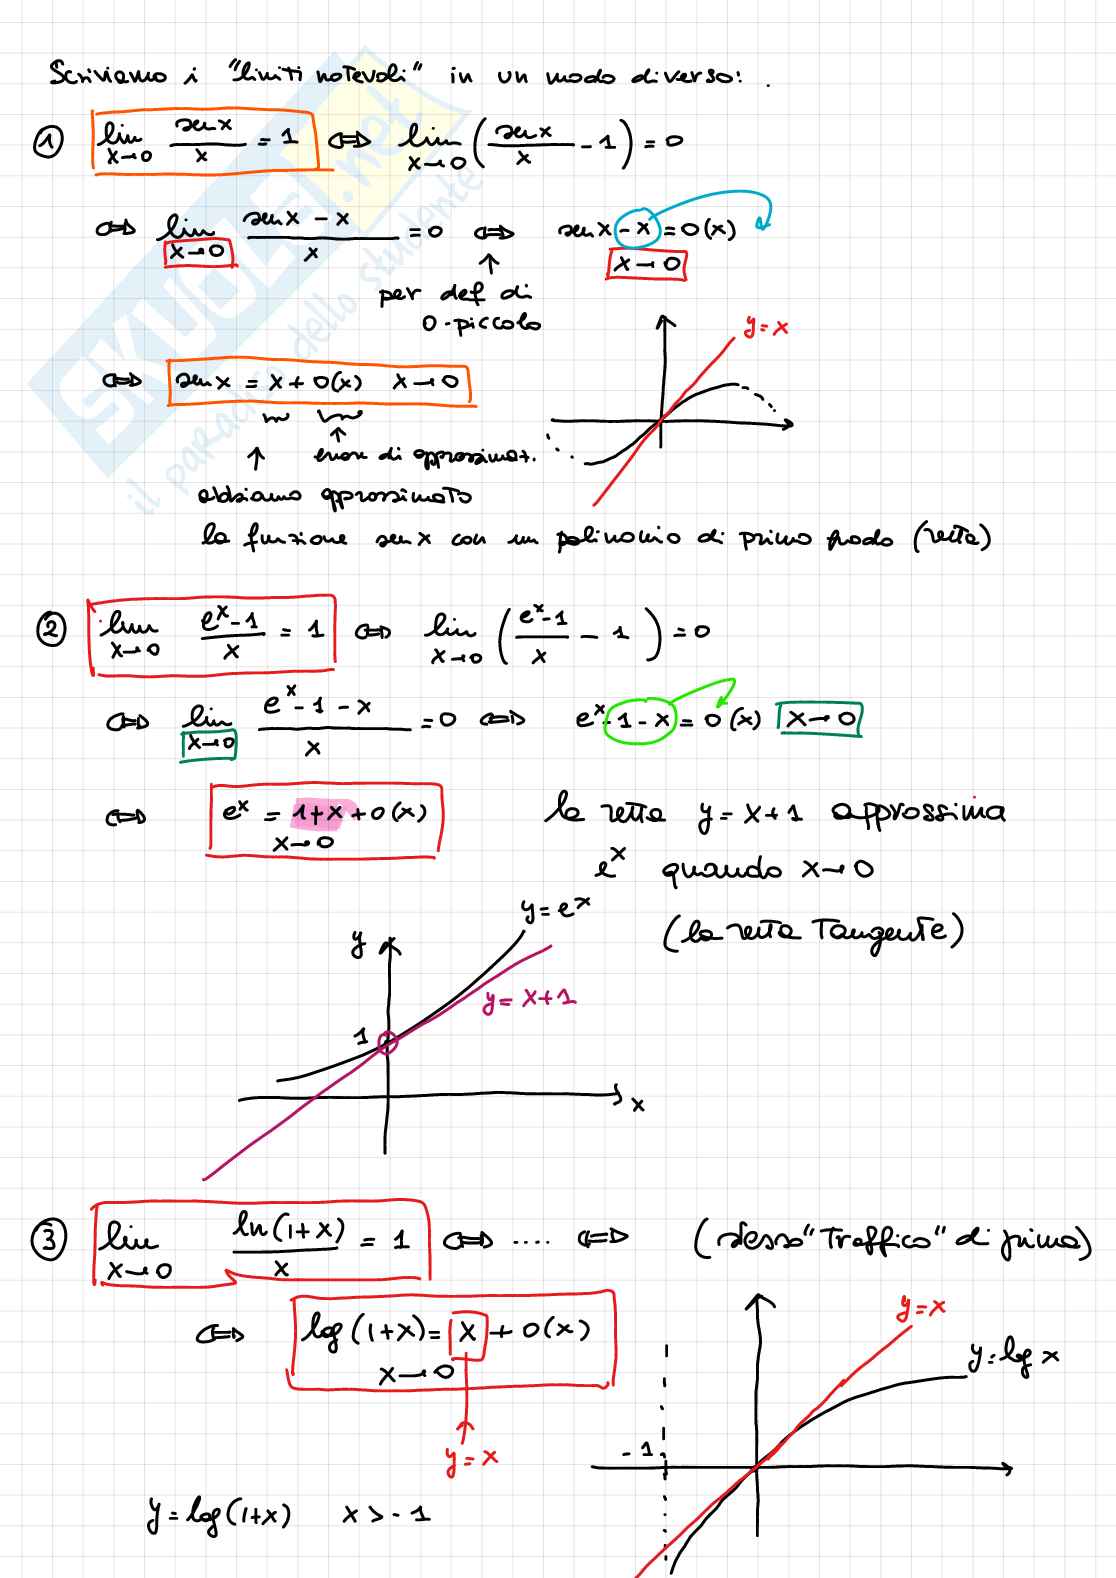 Scriviamo i "limiti notevoli" in un modo diverso:
① lim x→0 senx/x = 1 ⇔ lim x→0 (senx/x - 1) = 0
⇔ lim x→0 (senx - x)/x = 0 ⇔ senx - x = o(x) x→0
↑ per def di
o-piccolo
y=x
⇔ senx = x + o(x) x→0
↑ ↑ errore di approssimat.
abbiamo approssimato
la funzione senx con un polinomio di primo grado (retta)
② lim x→0 (eˣ-1)/x = 1 ⇔ lim x→0 ((eˣ-1)/x - 1) = 0
⇔ lim x→0 (eˣ - 1 - x)/x = 0 ⇔ eˣ - 1 - x = o(x) x→0
⇔ eˣ = 1+x + o(x) x→0
la retta y = x+1 approssima
eˣ quando x→0
(la retta tangente)
y y=eˣ
y = x+1
1
x
③ lim x→0 ln(1+x)/x = 1 ⇔ .... ⇔ (stesso "traffico" di prima)
⇔ log(1+x) = x + o(x) x→0
y=x
y=log x
-1
y = x
y = log(1+x) x > -1
SKUOLA.net
il paradiso dello studente